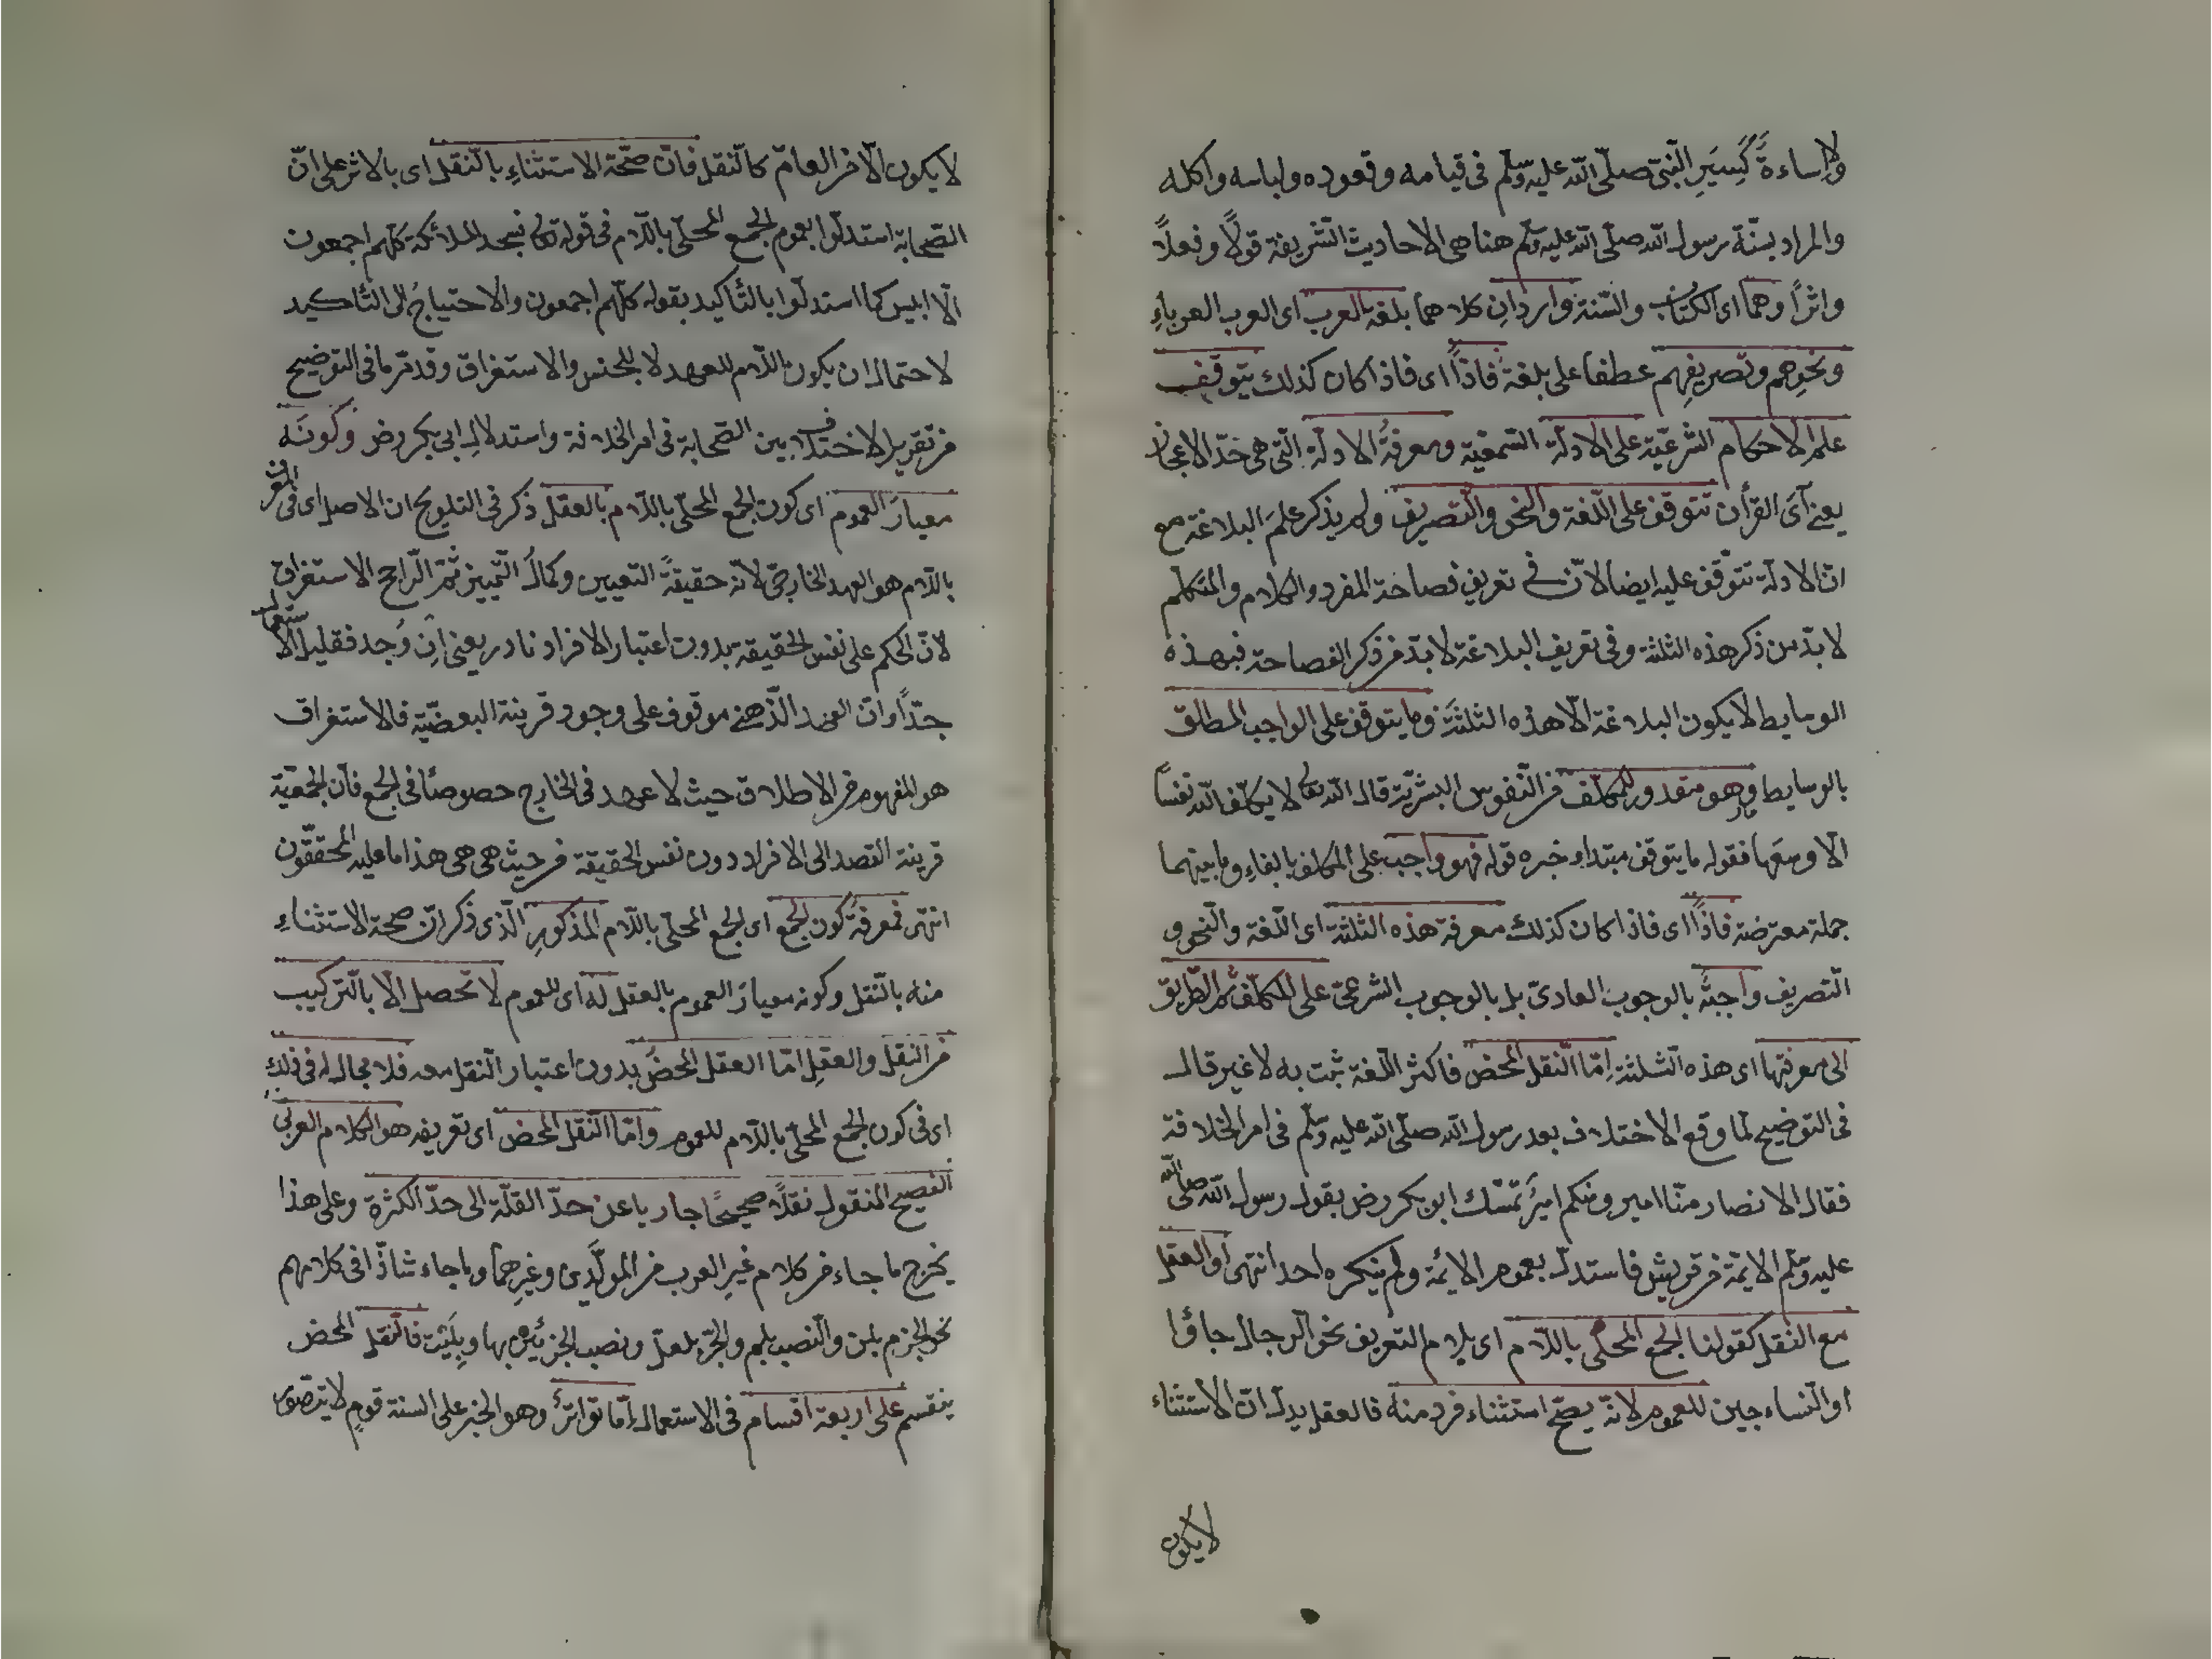 ولا اساءةً كَسِيَرِ النّبىّ صلّى اللّه عليه وسلّم فى قيامه وقعوده ولباسه واكله
والمراد بسنّة رسول اللّه صلّى اللّه عليه وسلّم هنا هى الاحاديث الشريفة قولاً وفعلاً
واثراً وهما اى الكتاب والسّنة واردانِ كلاهما بلغة العرب اى العرب العرباءِ
ونحوِهم وتصريفِهم عطفا على بلغة فاذاً اى فاذا كان كذلك يتوقّف
علم الاحكام الشرعيّة على الادلّة السّمعيّة ومعرفةُ الادلّة التى هى حدّ الاعجاز
يعنى آىَ القرأن تتوقف على اللّغة والنحو والتّصريف ولم يذكر علمَ البلاغة مع
انّ الادلّة تتوقّف عليه ايضا لانّ فى تعريف فصاحة المفرد والكلام والمتكلّم
لا بدّ من ذكر هذه الثلثة وفى تعريف البلاغة لا بدّ من ذكر الفصاحة فبهذه
الوسايط لا يكون البلاغة الّا هذه الثلثة وما يتوقف على الواجب المطلق
بالوسايط وهو مقدور للمكلّف من النّفوس البشريّة قال اللّه تعالى لا يكلّف اللّه نفساً
الّا وسعها فقوله ما يتوقف مبتداء وخبره قوله فهو واجب على المكلف بالفاءِ وما بينهما
جملة معترضة فاذاً اى فاذا كان كذلك معرفة هذه الثلثة اى اللّغة والنّحو و
التّصريف واجبةٌ بالوجوب العادىّ بل بالوجوب الشرعىّ على المكلّف ثمّ الطّريق
الى معرفتها اى هذه الثلثة إمّا النّقل المحض فاكثر اللّغة ثبت به لا غير قال
فى التوضيح لمّا وقع الاختلاف بعد رسول اللّه صلّى اللّه عليه وسلّم فى امر الخلافة
فقال الانصار منّا امير ومنكم اميرٌ تمسّك ابو بكر رض بقول رسول اللّه صلّى اللّه
عليه وسلّم الائمّة من قريش فاستدلّ بعموم الائمّة ولم ينكره احد انتهى او العقل
مع النقل كقولنا الجمع المحلّى باللّام اى بلام التعريف نحو الرجال جاؤا
او النّساء جين للعموم لانّه يصحّ استثناء فرد منه فالعقل يدلّ انّ الاستثناء
لا يكون
لا يكون الّا من العامّ كالنّقل فانّ صحّة الاستثناءِ بالنّقل اى بالاثر على انّ
الصّحابة استدلّوا بعموم الجمع المحلّى باللّام فى قوله تعالى فسجد الملائكة كلّهم اجمعون
الّا ابليس كما استدلّوا بالتّأكيد بقوله كلّهم اجمعون والاحتياجُ الى التأكيد
لاحتمال ان يكون اللّام للعهد لا للجنس والاستغراق وقد مرّ ما فى التوضيح
من تقرير الاختلاف بين الصّحابة فى امر الخلافة واستدلال ابى بكر رض وكونَه
معيارَ العموم اى كون الجمع المحلّى باللّام بالعقل ذكر فى التلويح ان الاصل اى فى المعرف
باللّام هو العهد الخارجىّ لانّه حقيقةُ التعيين وكمالُ التّمييز ثمّ الرّاجح الاستغراق
لانّ الحكم على نفس الحقيقة بدون اعتبار الافراد نادر يعنى ان وُجد فقليل الاستعمال
جدّاً وانّ العهد الذّهنى موقوف على وجود قرينة البعضيّة فالاستغراق
هو المفهوم من الاطلاق حيث لا عهد فى الخارج خصوصًا فى الجمع فانّ الجمعيّة
قرينة القصد الى الافراد دون نفس الحقيقة من حيث هى هى هذا ما عليه المحقّقون
انتهى فمعرفةُ كون الجمع اى الجمع المحلّى باللّام المذكورِ الّذى ذكر انّ صحة الاستثناءِ
منه بالنّقل وكونه معيارَ العموم بالعقل له اى للعموم لا تحصل الّا بالتّركيب
من النقل والعقلِ امّا العقل المحضُ بدون اعتبار النّقل معه فلا مجال له فى ذلك
اى فى كون الجمع المحلّى باللّام للعموم وامّا النّقل المحض اى تعريفه هو الكلام العربى
الفصيح المنقول نقلًا صحيحًا جاريا عن حدّ القلّة الى حدّ الكثرة وعلى هذا
يخرج ما جاء من كلام غيرِ العرب من المولّدَين وغيرِهما وما جاء شاذّا فى كلامهم
نحو الجزم بلن والنّصب بلم والجرّ بلعلّ ونصب الجزئين بها وبِلَيْتَ فالنّقل المحض
ينقسم على اربعة اقسام فى الاستعمال امّا تواترٌ وهو الخبر على السنة قومٍ لا يتصّور